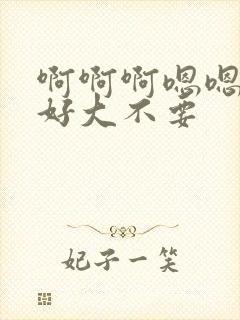 啊啊啊嗯嗯
好大不要
妃子一笑